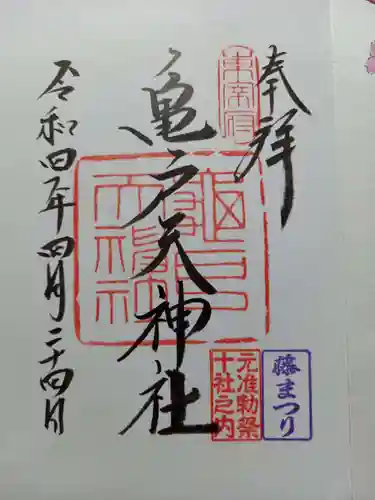 奉拝
東宰府
亀戸天神社
亀戸天神社
藤まつり
元准勅祭
十社之内
令和四年四月二十四日